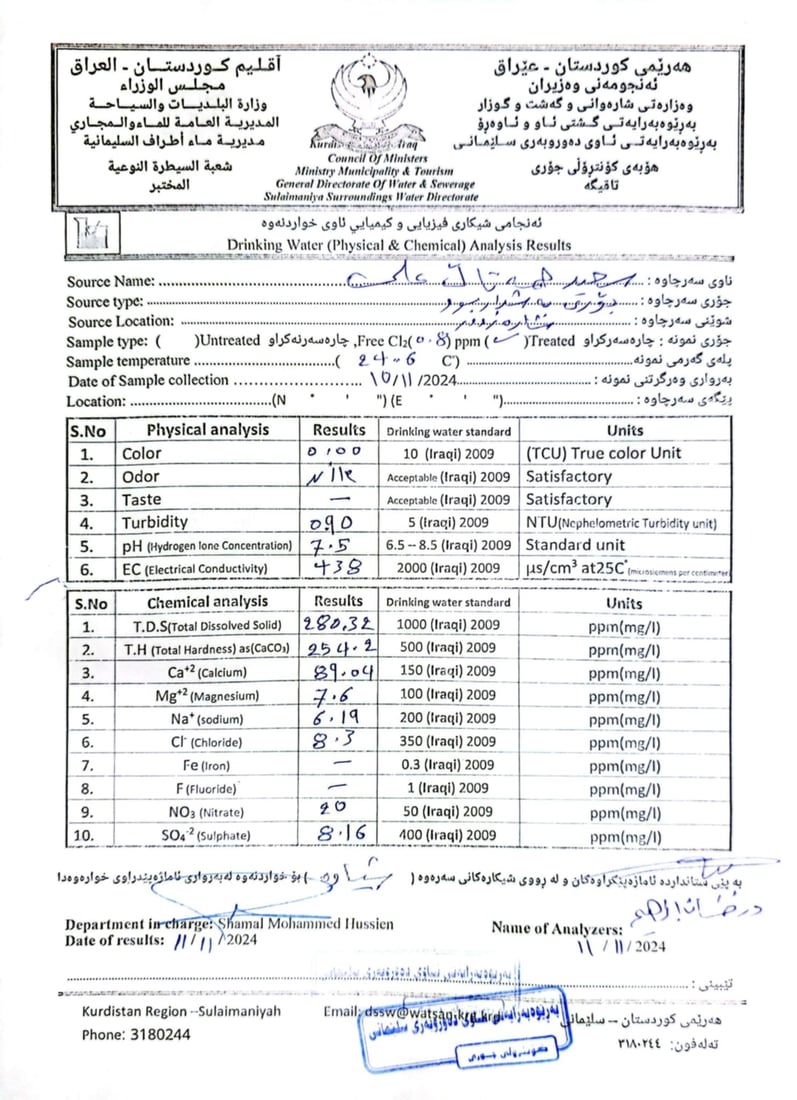 أقليم كوردستان - العراق
مجلس الوزراء
وزارة البلديات والسياحة
المديرية العامة للماء والمجاري
مديرية ماء أطراف السليمانية
شعبة السيطرة النوعية
المختبر
Council Of Ministers
Ministry Municipality & Tourism
General Directorate Of Water & Sewerage
Sulaimaniya Surroundings Water Directorate
هەرێمی کوردستان - عێراق
ئەنجومەنی وەزیران
وەزارەتی شارەوانی و گەشت و گوزار
بەڕێوەبەرایەتی گشتی ئاو و ئاوەڕۆ
بەڕێوەبەرایەتی ئاوی دەوروبەری سلێمانی
هۆبەی کۆنترۆڵی جۆری
تاقیگە
ئەنجامی شیکاری فیزیایی و کیمیایی ئاوی خواردنەوە
Drinking Water (Physical & Chemical) Analysis Results
Source Name: ناوی سەرچاوە :
Source type: جۆری سەرچاوە :
Source Location: شوێنی سەرچاوە :
Sample type: ( )Untreated چارەسەرنەکراو ,Free Cl₂(0.8) ppm (✓)Treated چارەسەرکراو : جۆری نمونە
Sample temperature (24.6 C°) پلەی گەرمی نمونە
Date of Sample collection 10/11/2024 بەرواری وەرگرتنی نمونە :
Location: (N ° ' ") (E ° ' ") پێگەی سەرچاوە :
S.No Physical analysis Results Drinking water standard Units
1. Color 0.00 10 (Iraqi) 2009 (TCU) True color Unit
2. Odor Acceptable (Iraqi) 2009 Satisfactory
3. Taste — Acceptable (Iraqi) 2009 Satisfactory
4. Turbidity 0.90 5 (Iraqi) 2009 NTU(Nephelometric Turbidity unit)
5. pH (Hydrogen Ione Concentration) 7.5 6.5 – 8.5 (Iraqi) 2009 Standard unit
6. EC (Electrical Conductivity) 438 2000 (Iraqi) 2009 µs/cm³ at25C°(microsiemens per centimeter)
S.No Chemical analysis Results Drinking water standard Units
1. T.D.S(Total Dissolved Solid) 280.32 1000 (Iraqi) 2009 ppm(mg/l)
2. T.H (Total Hardness) as(CaCO₃) 254.2 500 (Iraqi) 2009 ppm(mg/l)
3. Ca⁺² (Calcium) 89.04 150 (Iraqi) 2009 ppm(mg/l)
4. Mg⁺² (Magnesium) 7.6 100 (Iraqi) 2009 ppm(mg/l)
5. Na⁺ (sodium) 6.19 200 (Iraqi) 2009 ppm(mg/l)
6. Cl⁻ (Chloride) 8.3 350 (Iraqi) 2009 ppm(mg/l)
7. Fe (Iron) — 0.3 (Iraqi) 2009 ppm(mg/l)
8. F (Fluoride) — 1 (Iraqi) 2009 ppm(mg/l)
9. NO₃ (Nitrate) 20 50 (Iraqi) 2009 ppm(mg/l)
10. SO₄⁻² (Sulphate) 8.16 400 (Iraqi) 2009 ppm(mg/l)
بە پێی ستانداردە ئاماژەپێکراوەکان و لە ڕووی شیکارەکانی سەرەوە ( شیاوە ) بۆ خواردنەوە لەبەرواری ئاماژەپێدراوی خوارەوەدا
Department in charge: Shamal Mohammed Hussien
Date of results: 11/11/2024
Name of Analyzers:
11/11/2024
تێبینی :
Kurdistan Region --Sulaimaniyah
Phone: 3180244
Email: dssw@watsan.krg.krd
هەرێمی کوردستان -- سلێمانی
تەلەفون: ٣١٨٠٢٤٤
بەڕێوەبەرایەتی ئاوی دەوروبەری سلێمانی
کۆنترۆڵی جۆری